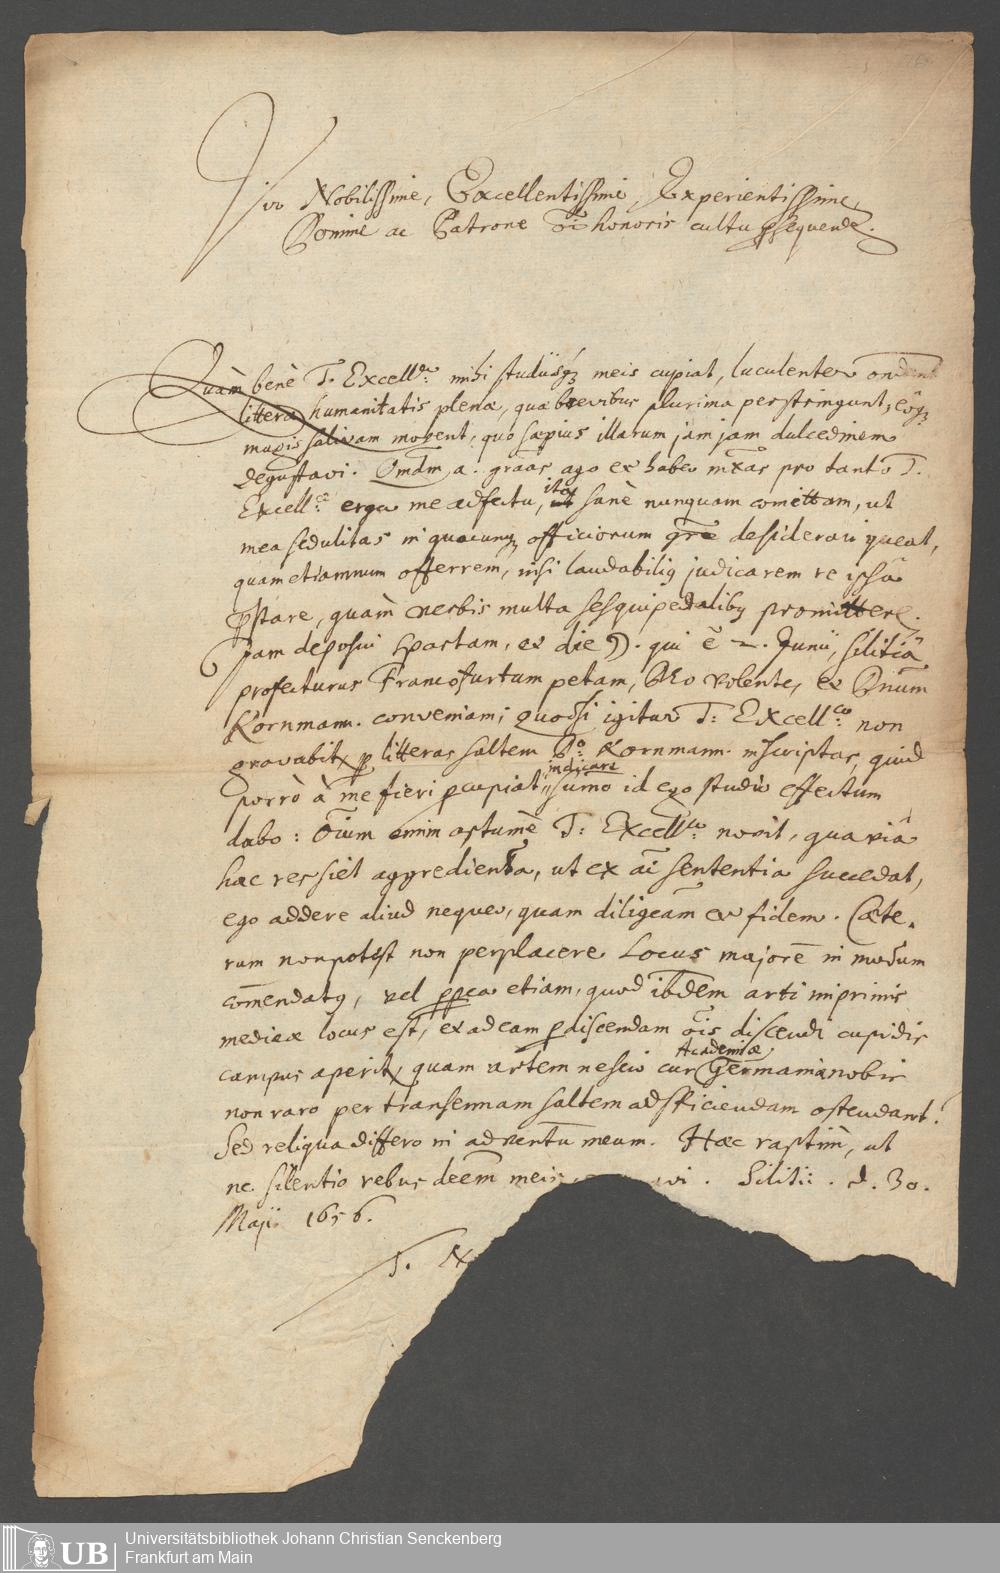 Vir Nobilissime, Excellentissime, Experientissime,
Domine ac Patrone oi honoris cultu psequende.
Quàm benè T. Excell. mihi studiisq; meis cupiat, luculenter
litteræ humanitatis plenæ, quæ brevibus plurima perstringunt, eoq;
magis salivam movent, quo sæpius illarum jam jam dulcedinem
degustavi. ago et habeo pro tanto T.
Excell. erga me adfectu, ita sanè nunquam comittam, ut
mea sedulitas in quocunq; officiorum gre desiderari queat,
quam etiamnum offerrem, nisi laudabiliq judicarem re ipsâ
pstare, quàm verbis multa sesquipedalibq promittere.
Jam deposui spartam, et die qui ē 2. Junii, Silitiâ
profecturus Francofurtum petam, Deo volente, et Dnum
Kornmann. conveniam; quodsi igitur T: Excell. non
gravabit p litteras saltem Dō Kornmann. inscriptas, quid
porrò à me fieri pcupiat indicare, sumo id ego studio effectum
dabo: Oium enim optumè T: Excell. novit, qua viâ
hæc res siet aggredienda, ut ex ai sententia succedat,
ego addere aliud nequeo, quam diligeām et fidem. Cæte-
rum non potest non perplacere Locus majorē in modum
comendatq, vel ppea etiam, quod ibdem arti imprimis
medicæ locus est, et ad eam pdiscendam oīs discendi cupidis
campus aperit, quam artem nescio cur Academiæ Germaniæ nobis
non raro per transennam saltem adspiciendam ostendant.
Sed reliqua differo in adventū meum. Hæc raptim, ut
ne silentio rebus deēm meis, Silitii. d. 30.
Maji 1656.
T. Ex
Universitätsbibliothek Johann Christian Senckenberg
Frankfurt am Main
UB